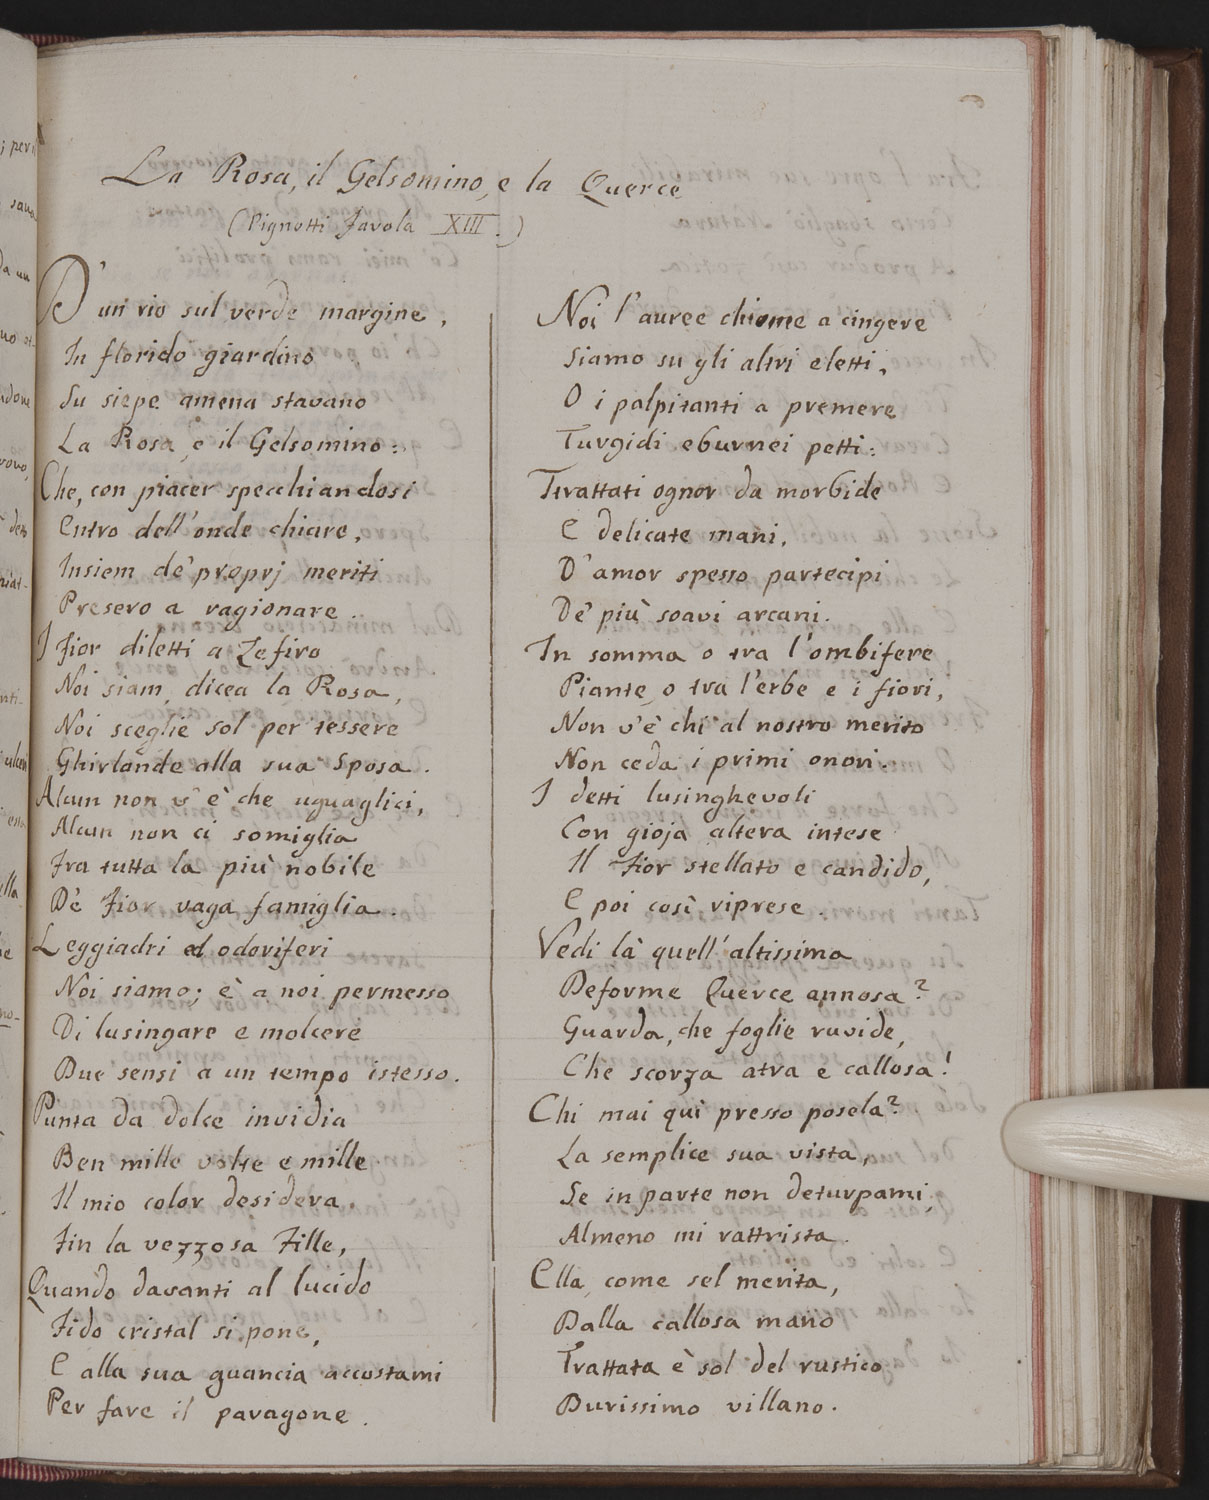 La Rosa, il Gelsomino, e la Querce
(Pignotti Favola XIII.)
D'un rio sul verde margine,
In florido giardino
Su siepe amena stavano
La Rosa, e il Gelsomino:
Che, con piacer specchiandosi
Entro dell'onde chiare,
Insiem de' proprj meriti
Presero a ragionare.
I Fior diletti a Zefiro
Noi siam, dicea la Rosa,
Noi sceglie sol per tessere
Ghirlande alla sua Sposa.
Alcun non v'è che uguaglici,
Alcun non ci somiglia
Fra tutta la più nobile
De' Fior vaga famiglia.
Leggiadri ed odoriferi
Noi siamo; è a noi permesso
Di lusingare e molcere
Due sensi a un tempo istesso.
Punta da dolce invidia
Ben mille volte e mille
Il mio color desidera,
Fin la vezzosa Fille,
Quando davanti al lucido
Fido cristal si pone,
E alla sua guancia accostami
Per fare il paragone.
Noi l'auree chiome a cingere
Siamo su gli altri eletti,
O i palpitanti a premere
Turgidi eburnei petti:
Trattati ognor da morbide
E delicate mani,
D'amor spesso partecipi
De' più soavi arcani.
In somma o tra l'ombifere
Piante, o tra l'erbe e i fiori,
Non v'è chi al nostro merito
Non ceda i primi onori.
I detti lusinghevoli
Con gioja altera intese
Il Fior stellato e candido,
E poi così riprese.
Vedi là quell'altissima
Deforme Querce annosa?
Guarda, che foglie ruvide,
Che scorza atra e callosa!
Chi mai qui presso posela?
La semplice sua vista,
Se in parte non deturpami,
Almeno mi rattrista.
Ella, come sel merita,
Dalla callosa mano
Trattata è sol del rustico
Durissimo villano.